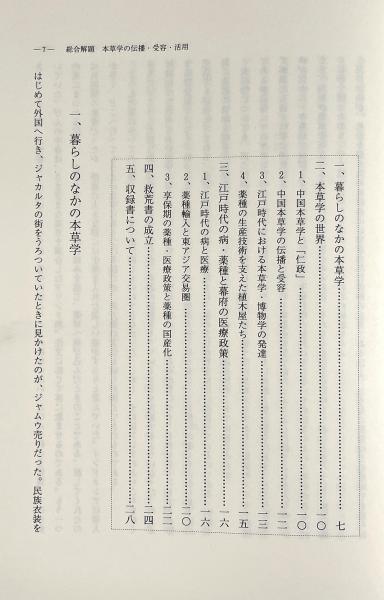 ―7― 総合解題 本草学の伝播・受容・活用
一、暮らしのなかの本草学……七
二、本草学の世界……一〇
1、中国本草学と「仁政」……一〇
2、中国本草学の伝播と受容……一二
3、江戸時代における本草学・博物学の発達……一三
4、薬種の生産技術を支えた植木屋たち……一五
三、江戸時代の病・薬種と幕府の医療政策……一六
1、江戸時代の病と医療……一六
2、薬種輸入と東アジア交易圏……二〇
3、享保期の薬種・医療政策と薬種の国産化……二二
四、救荒書の成立……二四
五、収録書について……二八
一、暮らしのなかの本草学
はじめて外国へ行き、ジャカルタの街をうろついていたときに見かけたのが、ジャムウ売りだった。民族衣装を